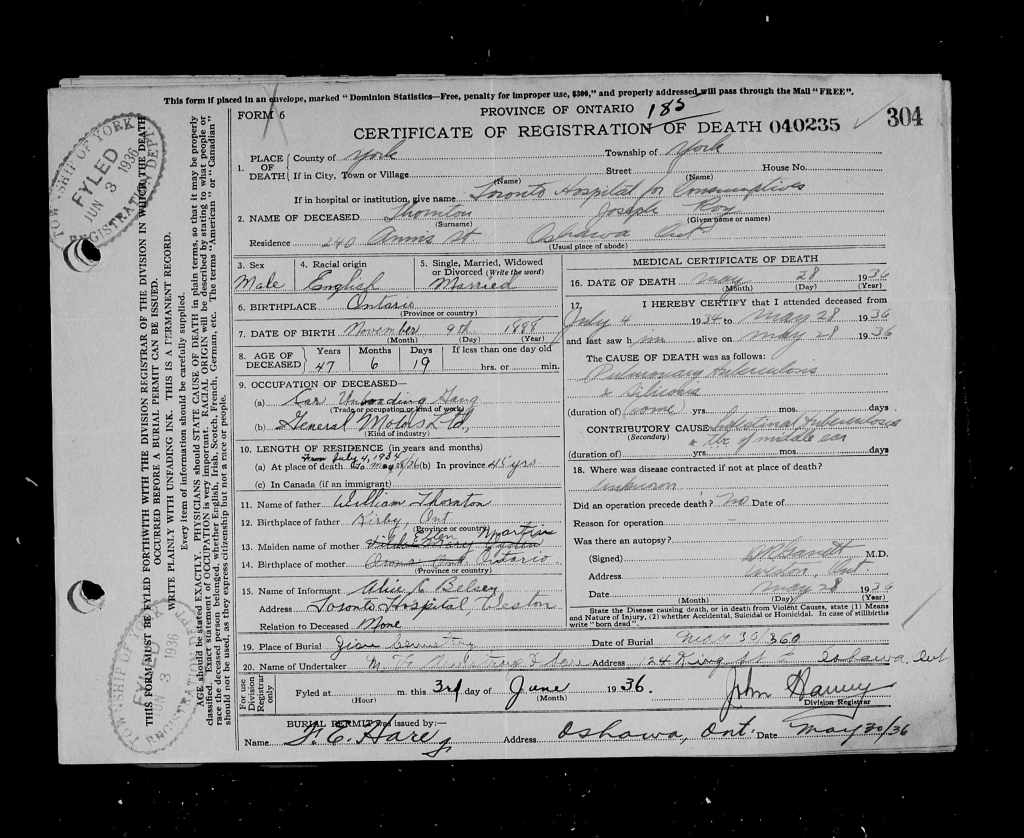 This form if placed in an envelope, marked "Dominion Statistics—Free, penalty for improper use, $300," and properly addressed will pass through the Mail "FREE".
FORM 6
PROVINCE OF ONTARIO 185
CERTIFICATE OF REGISTRATION OF DEATH 040235 304
1. PLACE OF DEATH County of York Township of York
If in City, Town or Village (Name) Street (Name) House No.
If in hospital or institution, give name Toronto Hospital for Consumptives
2. NAME OF DECEASED Thornton Joseph Roy
(Surname) (Given name or names)
Residence 240 Annis St Oshawa Ont
(Usual place of abode)
3. Sex Male
4. Racial origin English
5. Single, Married, Widowed or Divorced (Write the word) Married
6. BIRTHPLACE Ontario
(Province or country)
7. DATE OF BIRTH November 9th 1888
(Month) (Day) (Year)
8. AGE OF DECEASED Years 47 Months 6 Days 19 If less than one day old hrs. or min.
9. OCCUPATION OF DECEASED—
(a) Car Unloading Gang
(Trade or occupation or kind of work)
(b) General Motors Ltd.
(Kind of industry)
10. LENGTH OF RESIDENCE (in years and months)
From July 4, 1934
(a) At place of death to May 28/36 (b) In province 48 yrs
(c) In Canada (if an immigrant)
11. Name of father William Thornton
12. Birthplace of father Kirby, Ont
(Province or country)
13. Maiden name of mother Ellen
14. Birthplace of mother Ontario
(Province or country)
15. Name of Informant Alice C Belsey
Address Toronto Hospital, Weston
Relation to Deceased None
MEDICAL CERTIFICATE OF DEATH
16. DATE OF DEATH May 28 1936
(Month) (Day) (Year)
17. I HEREBY CERTIFY that I attended deceased from
July 4 1934 to May 28 1936
and last saw him alive on May 28 1936
The CAUSE OF DEATH was as follows:
Pulmonary tuberculosis
& Silicosis
(duration of) (some) yrs. mos. days
CONTRIBUTORY CAUSE Intestinal tuberculosis
(Secondary) & tbc of middle ear
(duration of) yrs. mos. days
18. Where was disease contracted if not at place of death?
unknown
Did an operation precede death? No Date of
Reason for operation
Was there an autopsy?
(Signed) M.D.
Address Weston, Ont
Date May 28 1936
(Month) (Day) (Year)
State the Disease causing death, or in death from Violent Causes, state (1) Means and Nature of Injury, (2) whether Accidental, Suicidal or Homicidal. In case of stillbirths write "born dead".
19. Place of Burial Zion Cemetery Date of Burial May 30/36
20. Name of Undertaker Armstrong & Son Address 124 King St E Oshawa. Ont
For use Division Registrar only
Fyled at m. this 3rd day of June 1936.
(Hour) (Month)
John Harvey
Division Registrar
BURIAL PERMIT was issued by:—
Name F. E. Hare Address Oshawa, Ont. Date May 30/36
THIS FORM MUST BE FYLED FORTHWITH WITH THE DIVISION REGISTRAR OF THE DIVISION IN WHICH THE DEATH
OCCURED BEFORE A BURIAL PERMIT CAN BE ISSUED.
WRITE PLAINLY WITH UNFADING INK. THIS IS A PERMANENT RECORD.
Every item of information should be carefully supplied.
AGE should be stated EXACTLY. PHYSICIANS should STATE CAUSE OF DEATH in plain terms, so that it may be properly
classified. Exact statement of OCCUPATION is very important. RACIAL ORIGIN will be described by stating to what people or
race the deceased person belonged, whether English, Irish, Scotch, French, German, etc. The terms "American" or "Canadian"
should not be used, as they express citizenship but not a race or people.
TOWNSHIP OF YORK
FYLED
JUN 3 1936
REGISTRATION DEPT
TOWNSHIP OF YORK
FYLED
JUN 3 1936
REGISTRATION DEPT